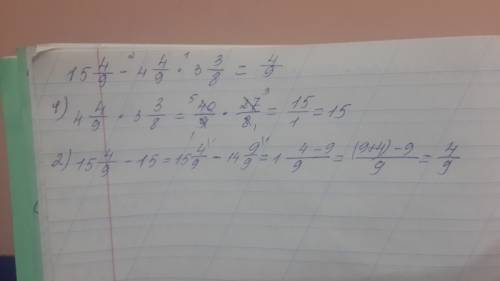 15 4/9 - ² 4 4/9 · ¹ 3 3/8 = 4/9
1) 4 4/9 · 3 3/8 = ⁵40/9 · 27³/8₁ = 15/1 = 15
2) 15 4/9 - 15 = 15 4/9 - 14 9/9 = 1 4-9/9 = (9+4)-9/9 = 4/9